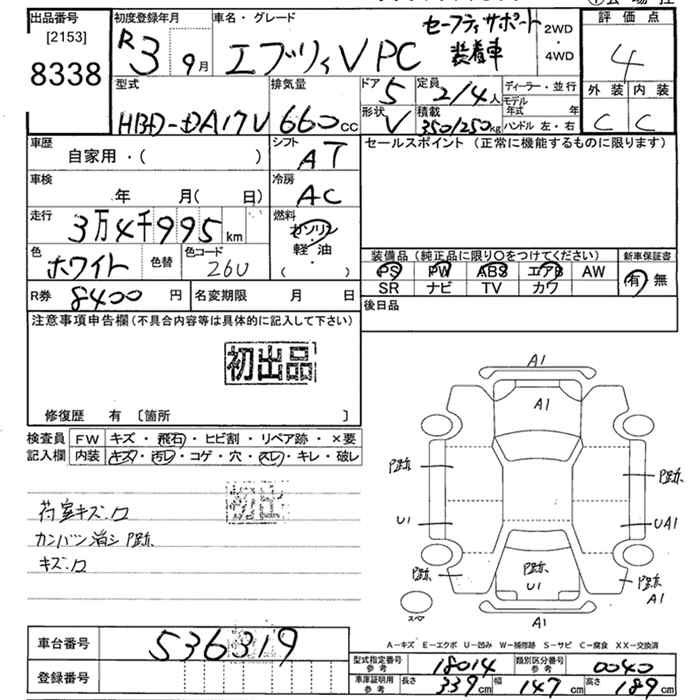 出品番号 [2153] 8338
初度登録年月 R3 9月
車名・グレード エブリィV PC
セーフティサポート
装着車
2WD・4WD
評価点 4
外装 C 内装 C
型式 HBD-DA17V
排気量 660cc
ドア 5
形状 V
定員 2/4人
積載 350/250kg
ディーラー・並行
モデル年式 年
ハンドル 左・右
車歴 自家用・( )
シフト AT
セールスポイント(正常に機能するものに限ります)
車検 年 月( 日)
冷房 AC
走行 3万4千995km
燃料 ガソリン
軽・油
( ・ )
色 ホワイト 色替
色コード 26U
装備品(純正品に限り○をつけてください)
PS PW ABS エアB AW
SR ナビ TV カワ
新車保証書 有・無
R券 8400円
名変期限 月 日
後日品
注意事項申告欄(不具合内容等は具体的に記入して下さい)
初出品
修復歴 有 〔箇所 〕
検査員記入欄
FW キズ・飛石・ヒビ割・リペア跡・×要
内装 キズ・汚レ・コゲ・穴・スレ・キレ・破レ
荷室キズ.ロ
カンバン消シ P跡
キズ.ロ
A1
A1
P跡 P跡
U1 UA1
P跡 P跡 U1 P跡 A1
スペ
A1
A-キズ E-エクボ U-凹み W-補修跡 S-サビ C-腐食 XX-交換済
車台番号 536319
登録番号
型式指定番号 参考 18014
類別区分番号 参考 0040
車庫証明用 参考 長さ 339cm 幅 147cm 高さ 189cm